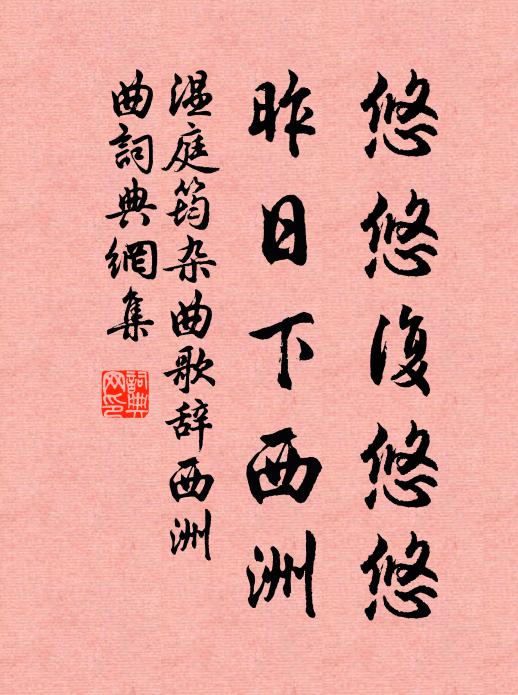 悠悠復悠悠
昨日下西洲
温庭筠杂曲歌辞西洲
曲詞典網集
詞典
网印